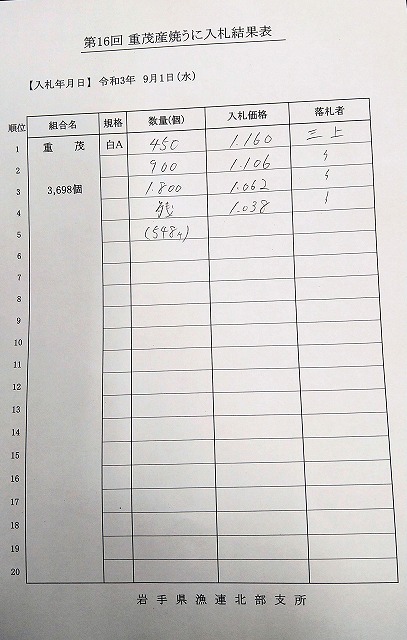 第16回 重茂産焼うに入札結果表
【入札年月日】 令和3年 9月1日(水)
順位 組合名 規格 数量(個) 入札価格 落札者
1 重 茂 白A 450 1.160 三上
2 900 1.106 〃
3 3,698個 1.800 1.062 〃
4 残 1.038 〃
5 (548ヶ)
6
7
8
9
10
11
12
13
14
15
16
17
18
19
20
岩手県漁連北部支所